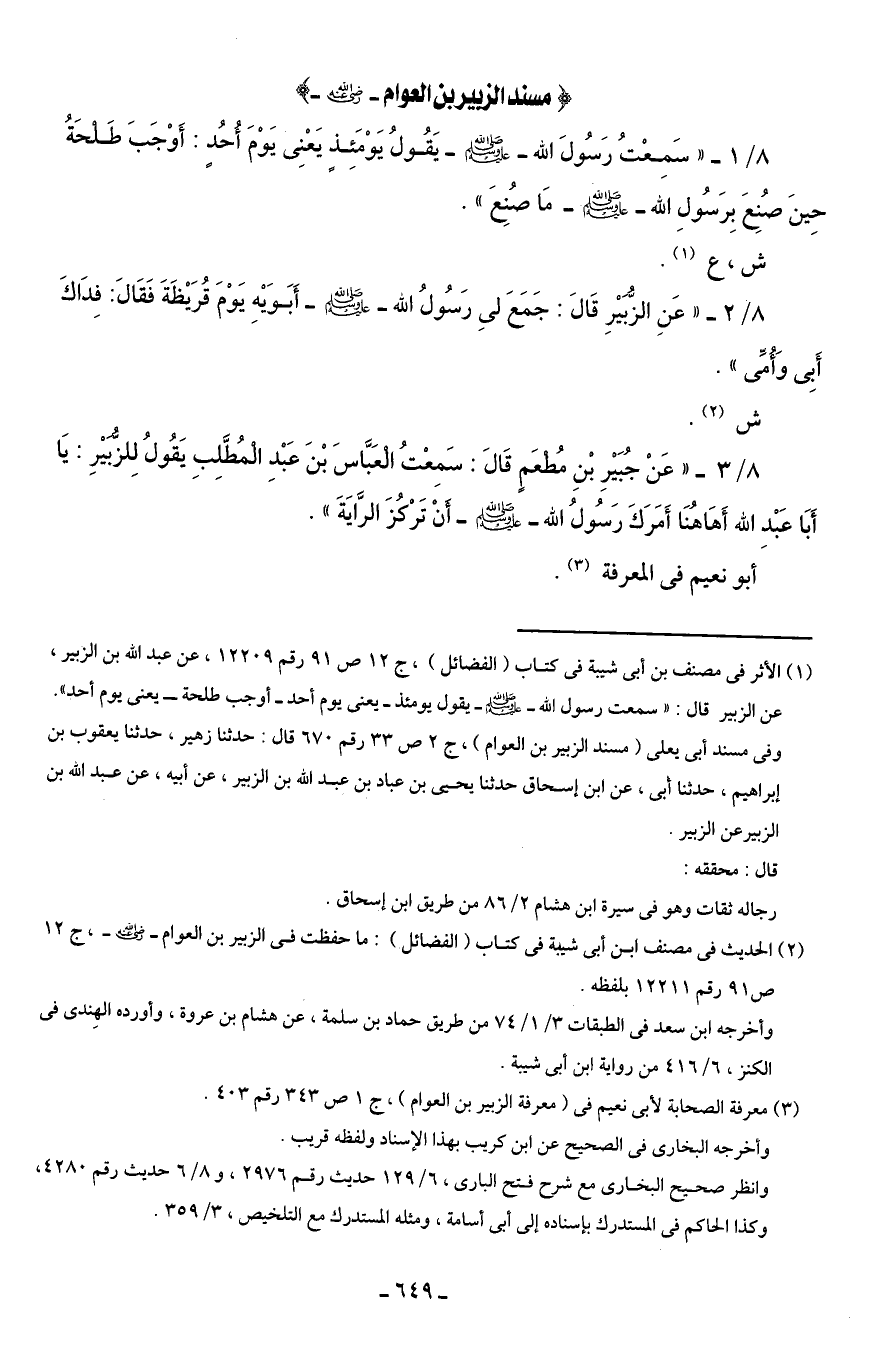 ﴿ مسند الزبير بن العوام ـ رضي الله عنه ـ ﴾
٨/ ١ ـ « سَمِعْتُ رَسُولَ الله ـ ﷺ ـ يَقُولُ يَوْمَئِذٍ يَعْنِى يَوْمَ أُحُدٍ : أَوْجَبَ طَلْحَةُ
حِينَ صُنِعَ بِرَسُولِ الله ـ ﷺ ـ مَا صُنِعَ » .
ش ، ع (١) .
٨/ ٢ ـ « عَنِ الزُّبَيْرِ قَالَ : جَمَعَ لى رَسُولُ الله ـ ﷺ ـ أَبَوَيْهِ يَوْمَ قُرَيْظَةَ فَقَالَ: فِدَاكَ
أَبِى وَأُمِّى » .
ش (٢) .
٨/ ٣ ـ « عَنْ جُبَيْرِ بْنِ مُطْعَمٍ قَالَ : سَمِعْتُ الْعَبَّاسَ بْنَ عَبْدِ الْمُطَّلِبِ يَقُولُ لِلزُّبَيْرِ : يَا
أَبَا عَبْدِ الله أَهَاهُنَا أَمَرَكَ رَسُولُ الله ـ ﷺ ـ أَنْ تَرْكُزَ الرَّايَةَ » .
أبو نعيم فى المعرفة (٣) .
(١) الأثر فى مصنف بن أبى شيبة فى كتاب ( الفضائل ) ، ج ١٢ ص ٩١ رقم ١٢٢٠٩ ، عن عبد الله بن الزبير ،
عن الزبير قال : « سمعت رسول الله ـ ﷺ ـ يقول يومئذ ـ يعنى يوم أحد ـ أوجب طلحة ـ يعنى يوم أحد».
وفى مسند أبى يعلى ( مسند الزبير بن العوام ) ، ج ٢ ص ٣٣ رقم ٦٧٠ قال : حدثنا زهير ، حدثنا يعقوب بن
إبراهيم ، حدثنا أبى ، عن ابن إسحاق حدثنا يحيى بن عباد بن عبد الله بن الزبير ، عن أبيه ، عن عبد الله بن
الزبيرعن الزبير .
قال : محققه :
رجاله ثقات وهو فى سيرة ابن هشام ٢/ ٨٦ من طريق ابن إسحاق .
(٢) الحديث فى مصنف ابن أبى شيبة فى كتاب ( الفضائل ) : ما حفظت فى الزبير بن العوام ـ رضي الله عنه ـ ، ج ١٢
ص٩١ رقم ١٢٢١١ بلفظه .
وأخرجه ابن سعد فى الطبقات ٣/ ١/ ٧٤ من طريق حماد بن سلمة ، عن هشام بن عروة ، وأورده الهندى فى
الكنز ، ٦/ ٤١٦ من رواية ابن أبى شيبة .
(٣) معرفة الصحابة لأبى نعيم فى ( معرفة الزبير بن العوام ) ، ج ١ ص ٣٤٣ رقم ٤٠٣ .
وأخرجه البخارى فى الصحيح عن ابن كريب بهذا الإسناد ولفظه قريب .
وانظر صحيح البخارى مع شرح فتح البارى ، ٦/ ١٢٩ حديث رقم ٢٩٧٦ ، و ٨/ ٦ حديث رقم ٤٢٨٠،
وكذا الحاكم فى المستدرك بإسناده إلى أبى أسامة ، ومثله المستدرك مع التلخيص ، ٣/ ٣٥٩ .
ـ ٦٤٩ ـ